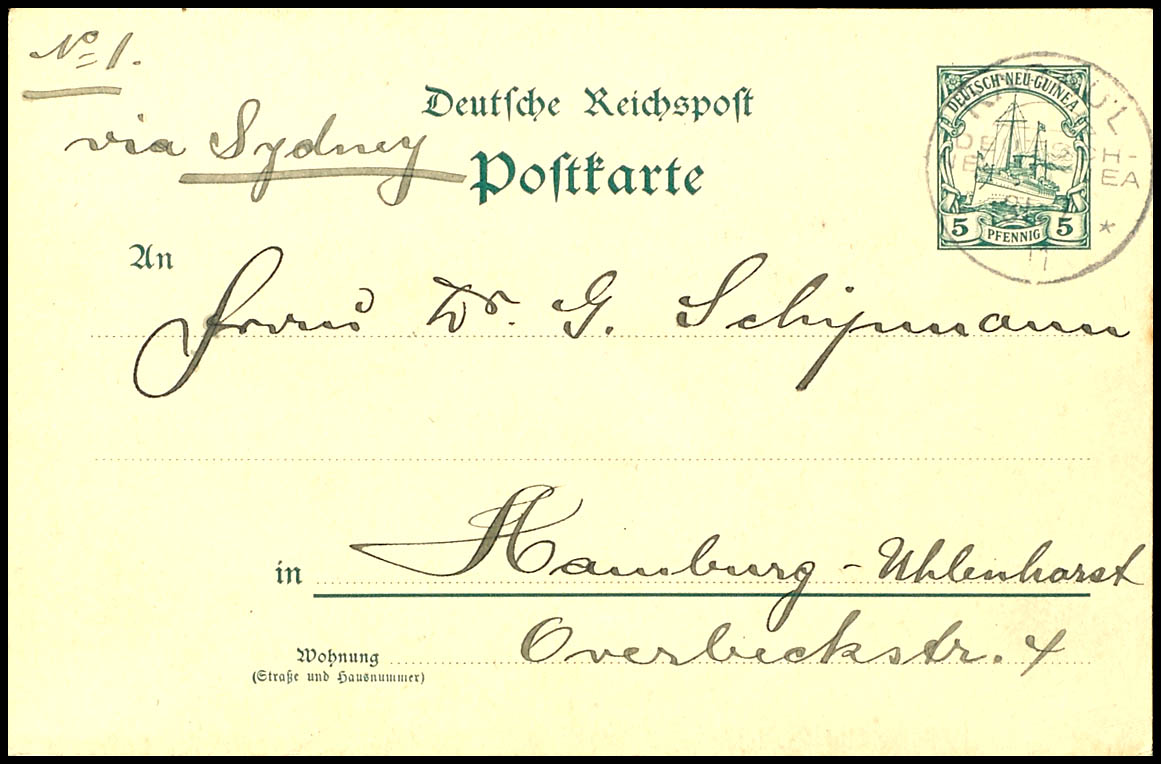 No 1.
via Sydney
Deutsche Reichspost
Postkarte
DEUTSCH-NEU-GUINEA
5 PFENNIG 5
An
Frau Dr. G. Schipmann
in Hamburg - Uhlenhorst
Wohnung Overbeckstr. 4
(Straße und Hausnummer)